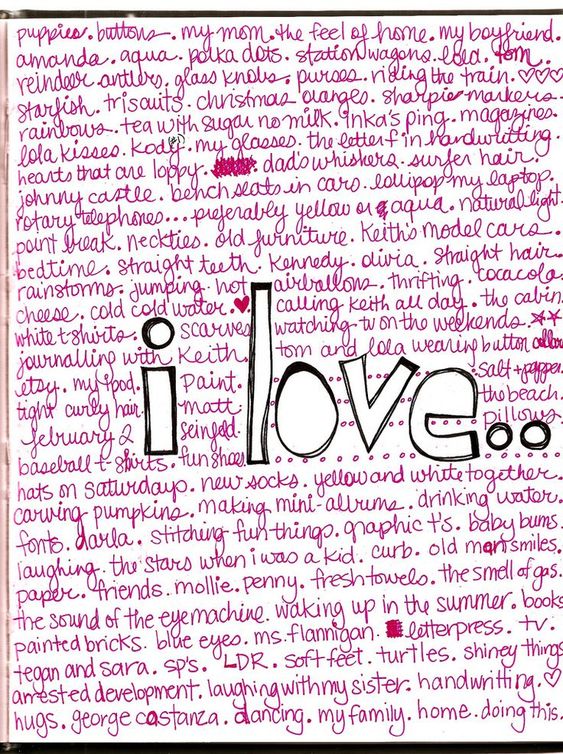 puppies. buttons. my mom. the feel of home. my boyfriend.
amanda. aqua. polka dots. station wagons. lola. tom.
reindeer antlers. glass knobs. purses. riding the train. ♡♡♡
starfish. triscuits. christmas oranges. sharpie markers.
rainbows. tea with sugar no milk. inka's ping. magazines.
lola kisses. Kody. my glasses. the letter f in handwritting.
hearts that are loppy. dad's whiskers. surfer hair.
johnny castle. bench seats in cars. lollipop my laptop.
rotary telephones... preferably yellow or aqua. natural light.
point break. neckties. old furniture. Keith's model cars.
bedtime. straight teeth. Kennedy. olivia. straight hair.
rainstorms. jumping. hot airballons. thrifting. cocacola.
cheese. cold cold water. ♥ calling keith all day. the cabin.
white t-shirts. scarves watching tv on the weekends. ☆☆
journalling with Keith. tom and lola wearing button
etsy. my food. paint. salt + pepper.
tight curly hair. matt the beach.
february 2 seinfeld. pillows.
i love..
baseball t-shirts. fun shoes
hats on saturdays. new socks. yellow and white together.
carving pumpkins. making mini-albums. drinking water.
fonts. darla. stitching fun things. graphic t's. baby bums.
laughing. the stars when i was a kid. curb. old man smiles.
paper. friends. mollie. penny. fresh towels. the smell of gas.
the sound of the eye machine. waking up in the summer. books
painted bricks. blue eyes. ms. flannigan. letterpress. tv.
tegan and sara. sp's. LDR. soft feet. turtles. shiney things
arrested development. laughing with my sister. handwritting. ♡
hugs. george costanza. dancing. my family. home. doing this.